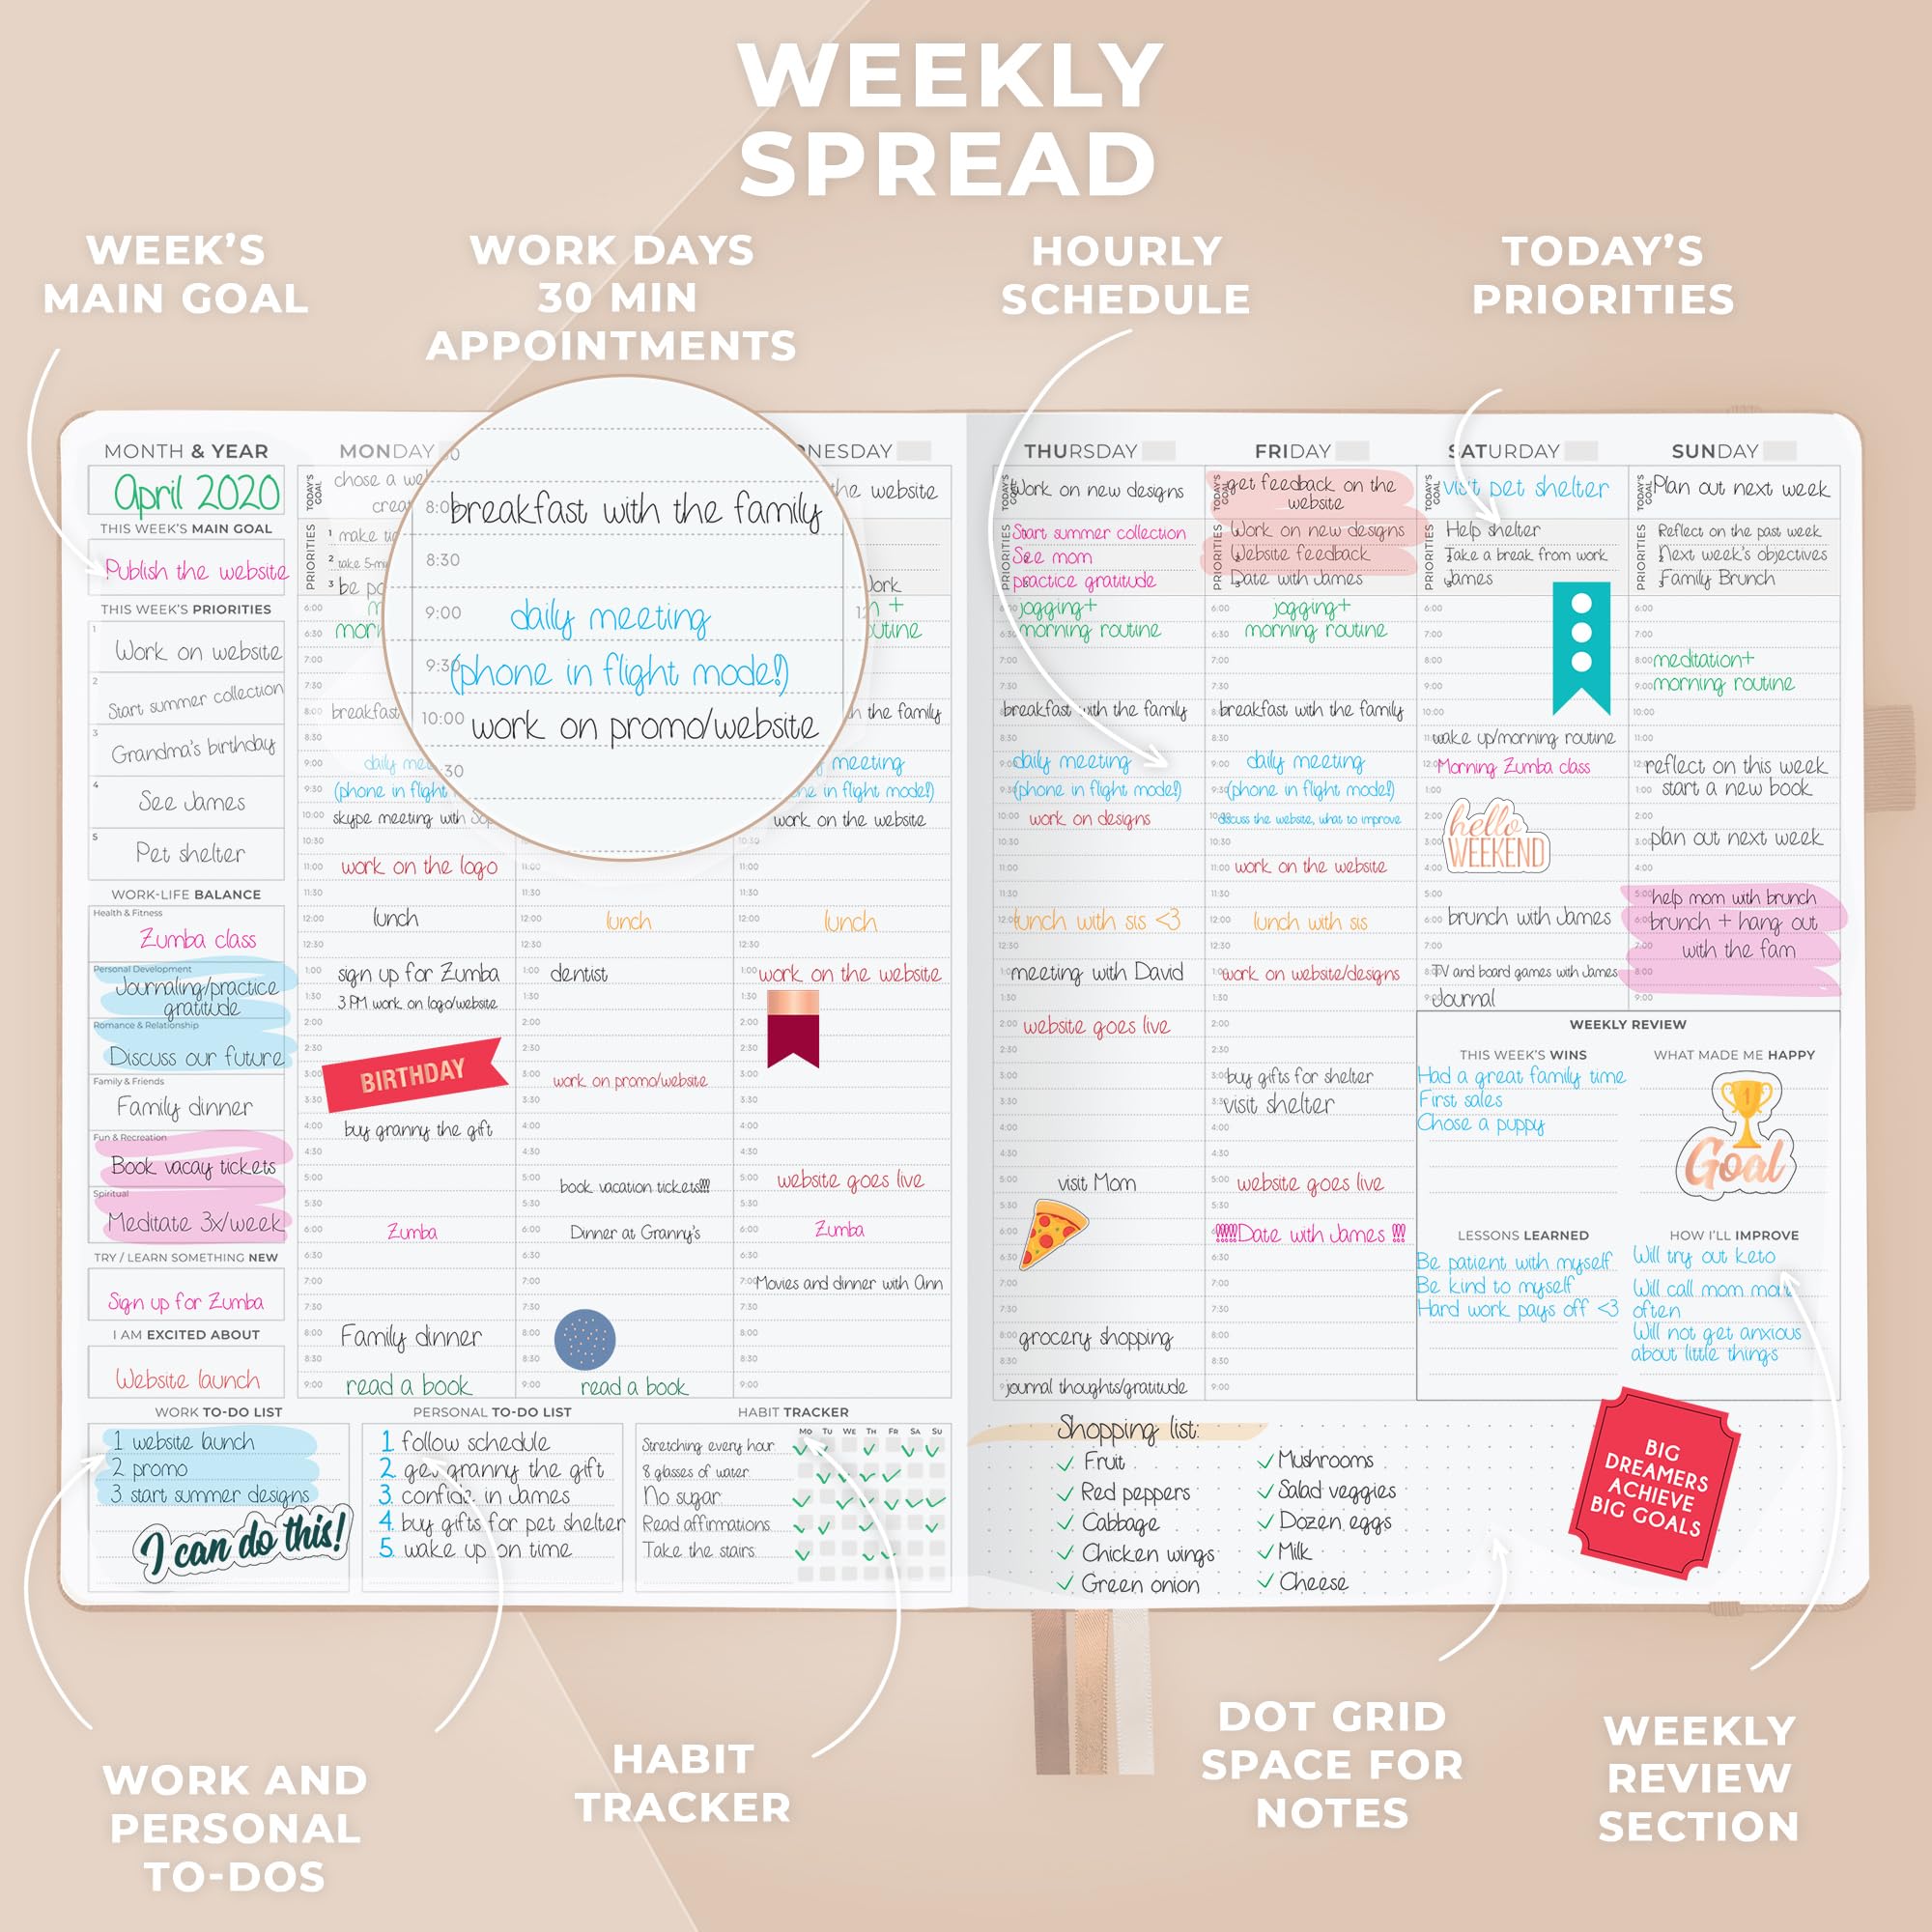 WEEKLY
SPREAD
WEEK'S
MAIN GOAL
WORK DAYS
30 MIN
APPOINTMENTS
HOURLY
SCHEDULE
TODAY'S
PRIORITIES
MONTH & YEAR
April 2020
THIS WEEK'S MAIN GOAL
Publish the website
THIS WEEK'S PRIORITIES
1 Work on website
2 Start summer collection
3 Grandma's birthday
4 See James
5 Pet shelter
WORK-LIFE BALANCE
Health & Fitness
Zumba class
Personal Development
Journaling/practice
gratitude
Romance & Relationship
Discuss our future
Family & Friends
Family dinner
Fun & Recreation
Book vacay tickets
Spiritual
Meditate 3x/week
TRY / LEARN SOMETHING NEW
Sign up for Zumba
I AM EXCITED ABOUT
Website launch
MONDAY
TODAY'S GOAL
chose a
PRIORITIES
1 make
2 take
3 be
6:00
6:30
7:00
7:30
8:00 breakfast
8:30
9:00 daily
9:30 (phone in flight
10:00 skype meeting with
10:30
11:00 work on the logo
11:30
12:00 lunch
12:30
1:00 sign up for Zumba
1:30 3 PM work on logo/website
2:00
2:30
BIRTHDAY
3:00
3:30
4:00 buy granny the gift
4:30
5:00
5:30
6:00 Zumba
6:30
7:00
7:30
8:00 Family dinner
8:30
9:00 read a book
8:00 breakfast with the family
8:30
9:00 daily meeting
9:30 (phone in flight mode!)
10:00 work on promo/website
:30
11:00
11:30
12:00 lunch
12:30
1:00 dentist
1:30
2:00
2:30
3:00 work on promo/website
3:30
4:00
4:30
5:00 book vacation tickets!!!!
5:30
6:00 Dinner at Granny's
6:30
7:00
7:30
8:00
8:30
9:00 read a book
NESDAY
the website
meeting
mode!)
work on the website
10:30
11:00
11:30
12:00 lunch
12:30
1:00 work on the website
1:30
2:00
2:30
3:00
3:30
4:00
4:30
5:00 website goes live
5:30
6:00 Zumba
6:30
7:00 Movies and dinner with Ann
7:30
8:00
8:30
9:00
THURSDAY
TODAY'S GOAL
Work on new designs
PRIORITIES
Start summer collection
See mom
practice gratitude
6:00 jogging+
6:30 morning routine
7:00
7:30
8:00 breakfast with the family
8:30
9:00 daily meeting
9:30 (phone in flight mode!)
10:00 work on designs
10:30
11:00
11:30
12:00 lunch with sis <3
12:30
1:00 meeting with David
1:30
2:00 website goes live
2:30
3:00
3:30
4:00
4:30
5:00 visit Mom
5:30
6:00
6:30
7:00
7:30
8:00 grocery shopping
8:30
9:00 journal thoughts/gratitude
FRIDAY
TODAY'S GOAL
get feedback on the
website
PRIORITIES
Work on new designs
Website feedback
Date with James
6:00 jogging+
6:30 morning routine
7:00
7:30
8:00 breakfast with the family
8:30
9:00 daily meeting
9:30 (phone in flight mode!)
10:00 discuss the website, what to improve
10:30
11:00 work on the website
11:30
12:00 lunch with sis
12:30
1:00 work on website/designs
1:30
2:00
2:30
3:00 buy gifts for shelter
3:30 visit shelter
4:00
4:30
5:00 website goes live
5:30
6:00 !!!!!Date with James !!!
6:30
7:00
7:30
8:00
8:30
9:00
SATURDAY
TODAY'S GOAL
visit pet shelter
PRIORITIES
Help shelter
Take a break from work
James
6:00
7:00
8:00
9:00
10:00
11:00 wake up/morning routine
12:00 Morning Zumba class
1:00
2:00
hello
WEEKEND
3:00
4:00
5:00
6:00 brunch with James
7:00
8:00 TV and board games with James
9:00 Journal
SUNDAY
TODAY'S GOAL
Plan out next week
PRIORITIES
Reflect on the past week
Next week's objectives
Family Brunch
6:00
7:00
8:00 meditation+
9:00 morning routine
10:00
11:00
12:00 reflect on this week
1:00 start a new book
2:00
3:00 plan out next week
4:00
5:00 help mom with brunch
6:00 brunch + hang out
7:00 with the fam
8:00
9:00
WEEKLY REVIEW
THIS WEEK'S WINS
Had a great family time
First sales
Chose a puppy
WHAT MADE ME HAPPY
1
Goal
LESSONS LEARNED
Be patient with myself
Be kind to myself
Hard work pays off <3
HOW I'LL IMPROVE
Will try out keto
Will call mom more
often
Will not get anxious
about little things
WORK TO-DO LIST
1 website launch
2 promo
3. start summer designs
I can do this!
PERSONAL TO-DO LIST
1 follow schedule
2. get granny the gift
3. confide in James
4. buy gifts for pet shelter
5. wake up on time
HABIT TRACKER
Mo Tu We Th Fr Sa Su
Stretching every hour
8 glasses of water
No sugar
Read affirmations
Take the stairs
Shopping list:
Fruit
Red peppers
Cabbage
Chicken wings
Green onion
Mushrooms
Salad veggies
Dozen eggs
Milk
Cheese
BIG
DREAMERS
ACHIEVE
BIG GOALS
WORK AND
PERSONAL
TO-DOS
HABIT
TRACKER
DOT GRID
SPACE FOR
NOTES
WEEKLY
REVIEW
SECTION